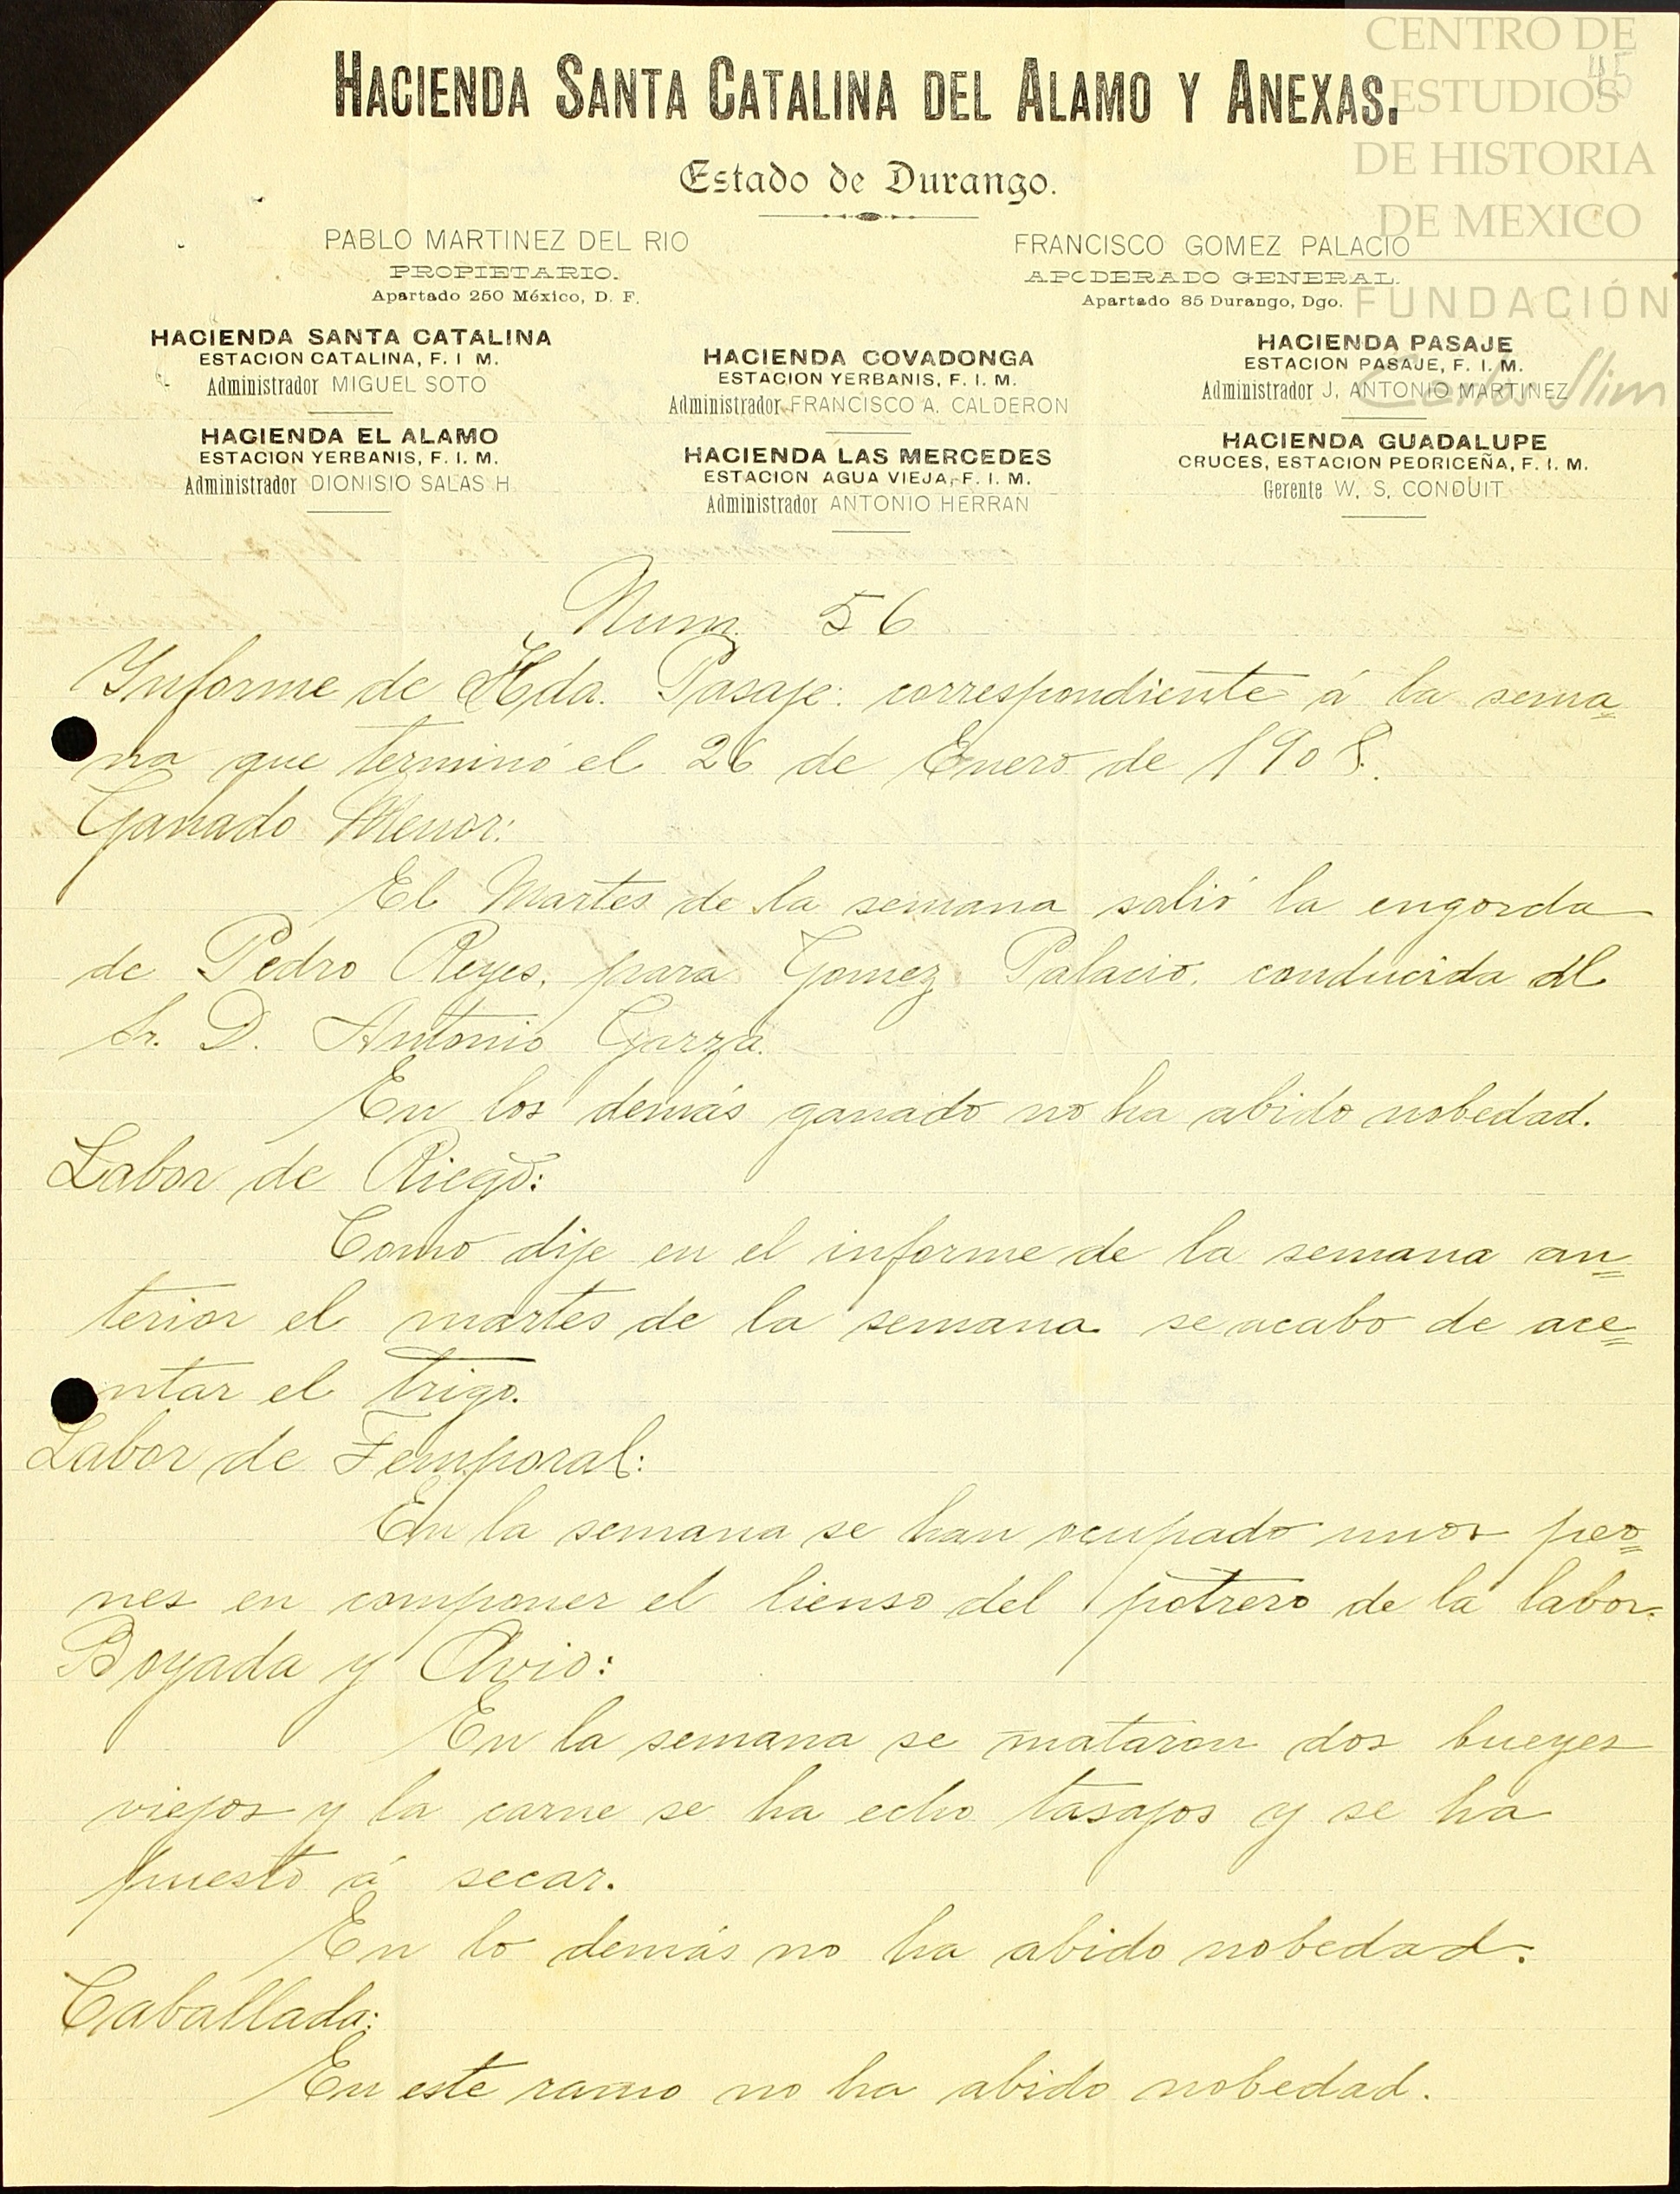 CENTRO DE
ESTUDIOS
DE HISTORIA
DE MEXICO
FUNDACIÓN
Carlos Slim
45
HACIENDA SANTA CATALINA DEL ALAMO Y ANEXAS.
Estado de Durango.
PABLO MARTINEZ DEL RIO
PROPIETARIO.
Apartado 250 México, D. F.
FRANCISCO GOMEZ PALACIO
APODERADO GENERAL.
Apartado 85 Durango, Dgo.
HACIENDA SANTA CATALINA
ESTACION CATALINA, F. I M.
Administrador MIGUEL SOTO
HACIENDA EL ALAMO
ESTACION YERBANIS, F. I. M.
Administrador DIONISIO SALAS H.
HACIENDA COVADONGA
ESTACION YERBANIS, F. I. M.
Administrador FRANCISCO A. CALDERON
HACIENDA LAS MERCEDES
ESTACION AGUA VIEJA, F. I. M.
Administrador ANTONIO HERRAN
HACIENDA PASAJE
ESTACION PASAJE, F. I. M.
Administrador J. ANTONIO MARTINEZ
HACIENDA GUADALUPE
CRUCES, ESTACION PEDRICEÑA, F. I. M.
Gerente W. S. CONDUIT
Num. 56
Informe de Hda. Pasaje: correspondiente á la sema=
na que terminó el 26 de Enero de 1908.
Ganado Menor:
El Martes de la semana salió la engorda
de Pedro Reyes, para Gomez Palacio, conducida al
Sr. D. Antonio Garza.
En los demás ganado no ha abido nobedad.
Labor de Riego:
Como dije en el informe de la semana an=
terior el martes de la semana se acabo de ace=
ntar el trigo.
Labor de Temporal:
En la semana se han ocupado unos peo=
nes en componer el lienso del potrero de la labor.
Boyada y Avio:
En la semana se mataron dos bueyes
viejos y la carne se ha echo tasajos y se ha
puesto á secar.
En lo demás no ha abido nobedad.
Caballada:
En este ramo no ha abido nobedad.